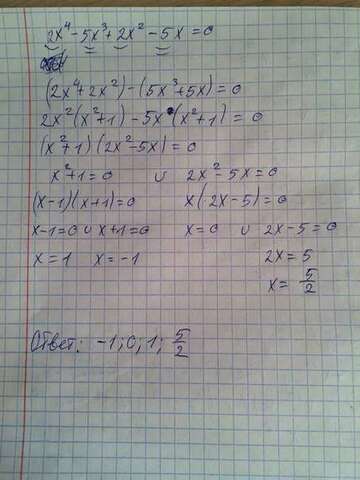 2x⁴-5x³+2x²-5x=0
(2x⁴+2x²)-(5x³+5x)=0
2x²(x²+1)-5x(x²+1)=0
(x²+1)(2x²-5x)=0
x²+1=0 ∪ 2x²-5x=0
(x-1)(x+1)=0 x(2x-5)=0
x-1=0 ∪ x+1=0 x=0 ∪ 2x-5=0
x=1 x=-1 2x=5
x=5/2
Ответ: -1; 0; 1; 5/2